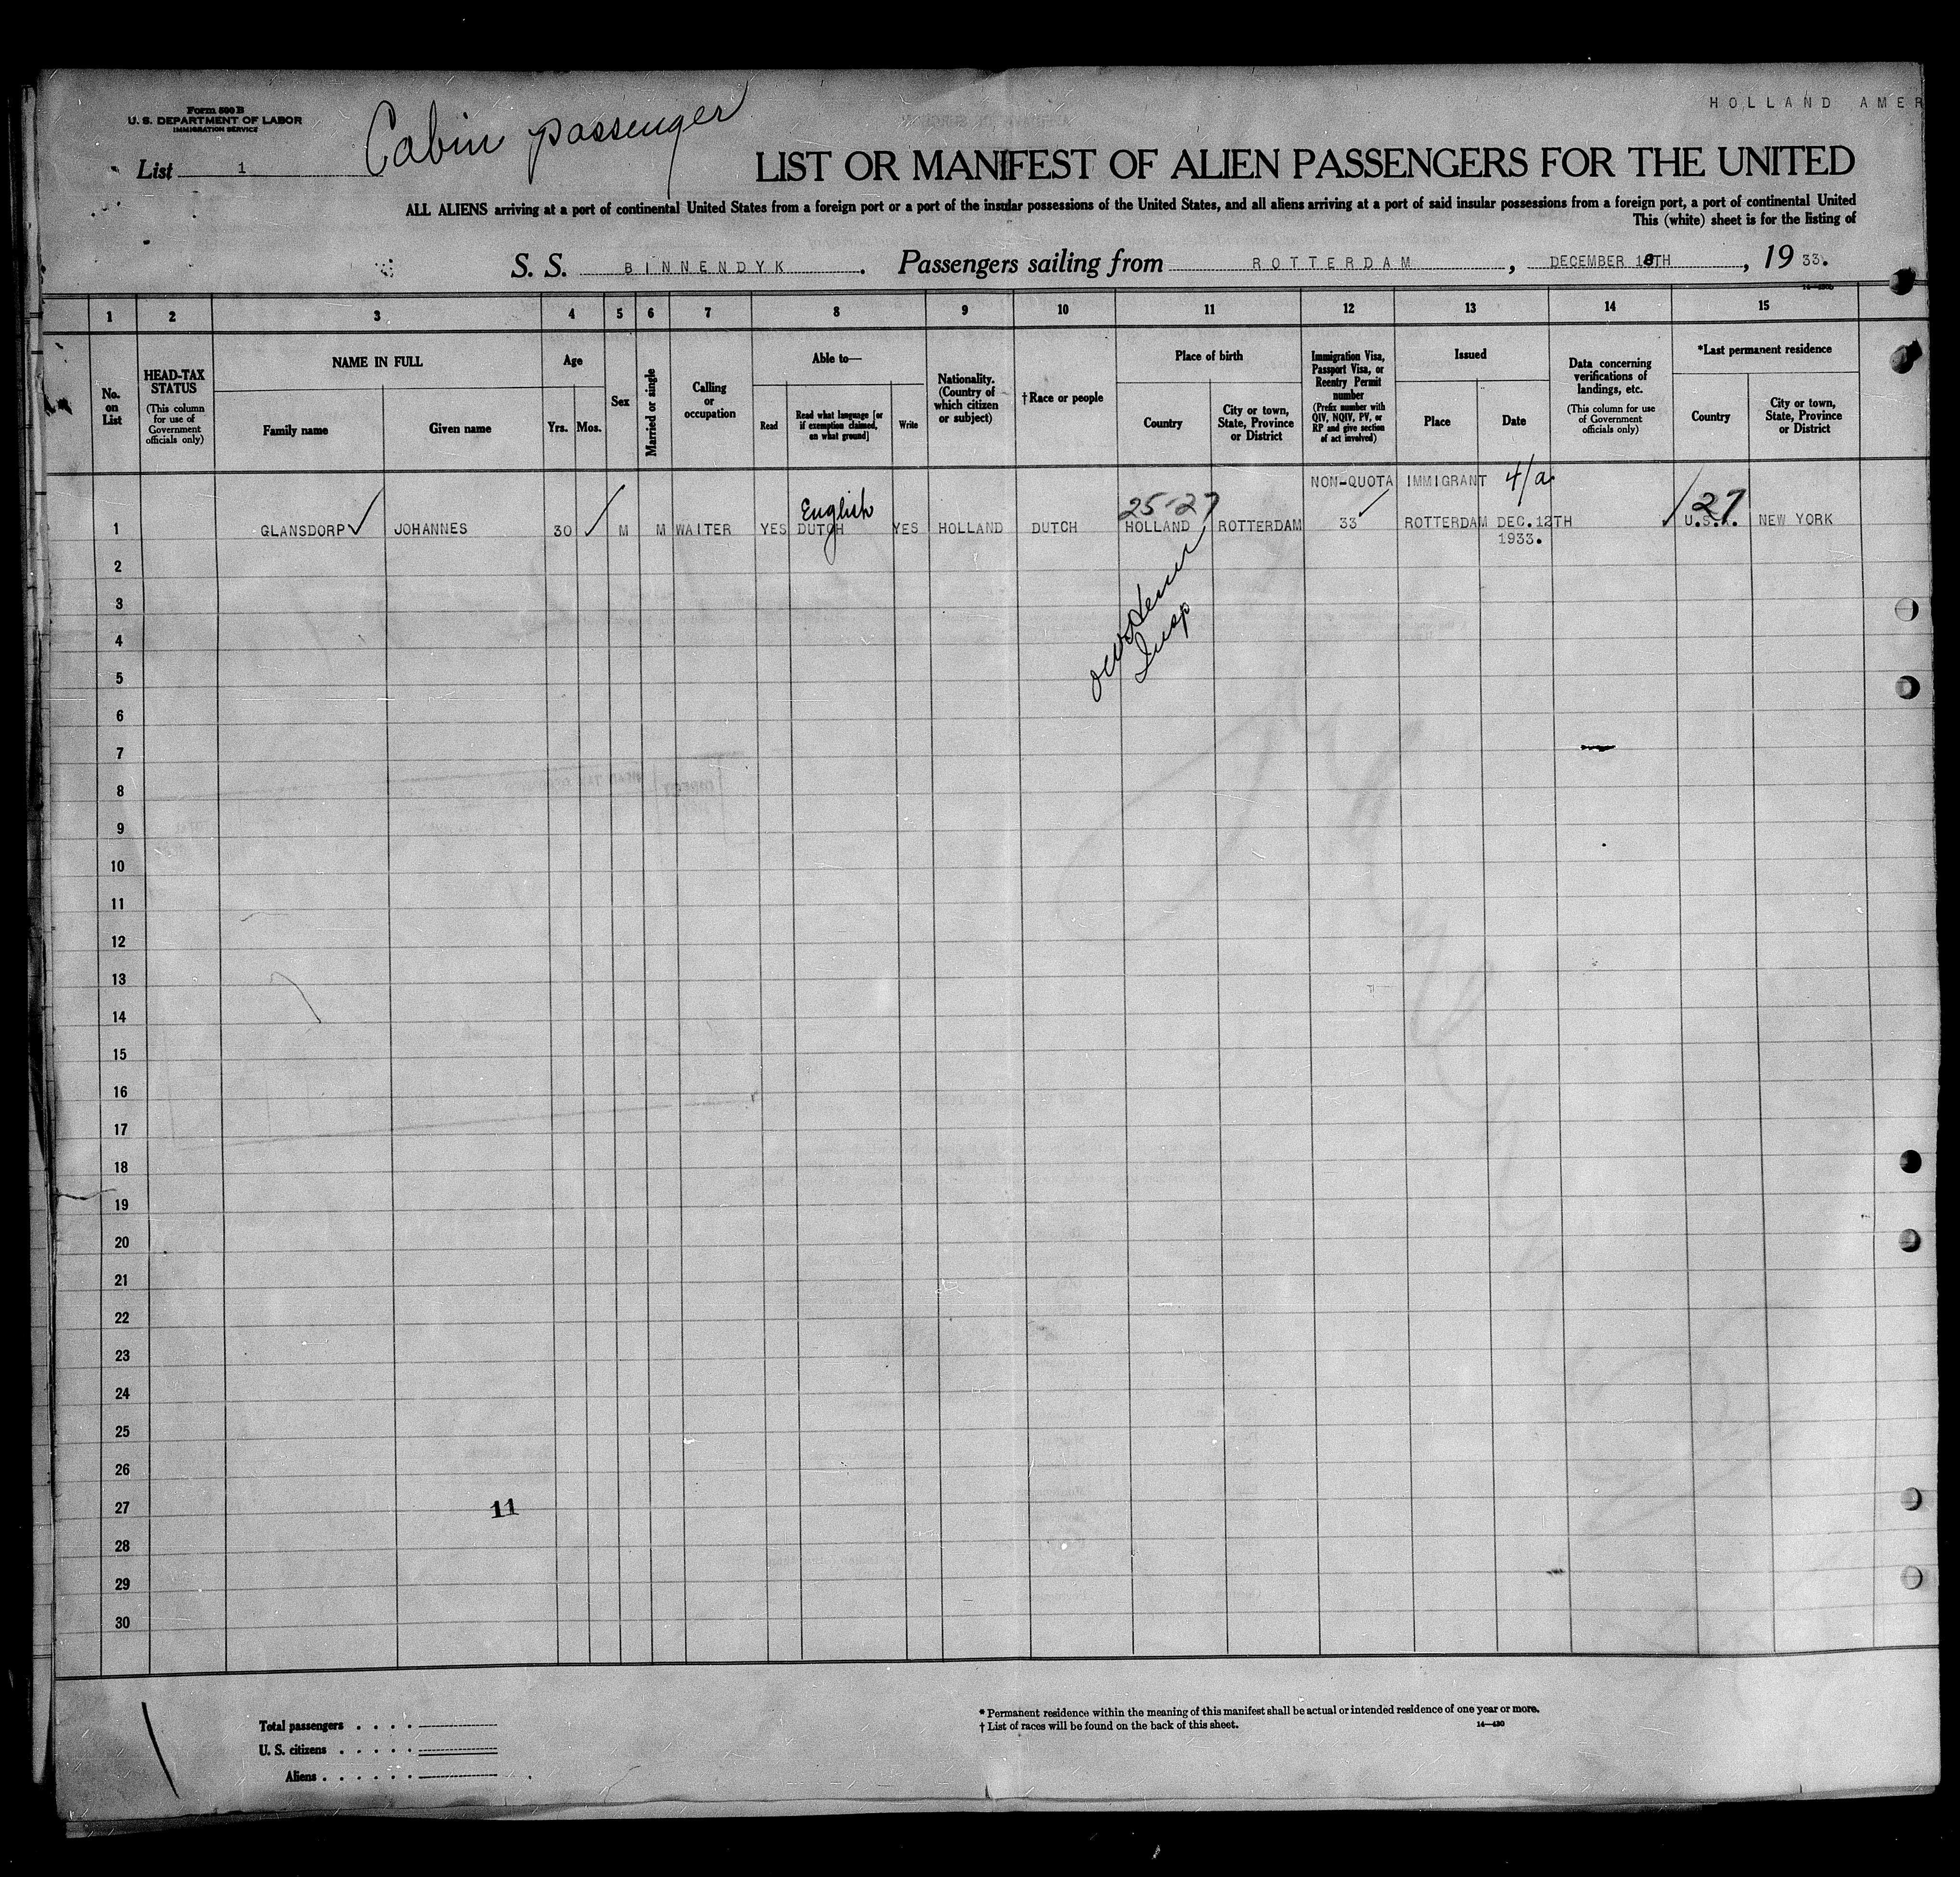 HOLLAND AMER
Form 500 B
U. S. DEPARTMENT OF LABOR
IMMIGRATION SERVICE
Cabin passenger
List 1
LIST OR MANIFEST OF ALIEN PASSENGERS FOR THE UNITED
ALL ALIENS arriving at a port of continental United States from a foreign port or a port of the insular possessions of the United States, and all aliens arriving at a port of said insular possessions from a foreign port, a port of continental United
This (white) sheet is for the listing of
S. S. BINNENDYK. Passengers sailing from ROTTERDAM, DECEMBER 18TH, 19 33.
1 2 3 4 5 6 7 8 9 10 11 12 13 14 15
No. on List
HEAD-TAX STATUS
(This column for use of Government officials only)
NAME IN FULL
Family name
Given name
Age
Yrs. Mos.
Sex
Married or single
Calling or occupation
Able to—
Read
Read what language [or if exemption claimed, on what ground]
Write
Nationality. (Country of which citizen or subject)
† Race or people
Place of birth
Country
City or town, State, Province or District
Immigration Visa, Passport Visa, or Reentry Permit number
(Prefix number with QIV, NQIV, PV, or RP and give section of act involved)
Issued
Place
Date
Data concerning verifications of landings, etc.
(This column for use of Government officials only)
*Last permanent residence
Country
City or town, State, Province or District
NON-QUOTA IMMIGRANT 4/a.
English 25-27 27
1 GLANSDORP JOHANNES 30 M M WAITER YES DUTCH YES HOLLAND DUTCH HOLLAND ROTTERDAM 33 ROTTERDAM DEC.12TH U.S.A. NEW YORK
1933.
Insp
2
3
4
5
6
7
8
9
10
11
12
13
14
15
16
17
18
19
20
21
22
23
24
25
26
27
11
28
29
30
Total passengers
U. S. citizens
Aliens
* Permanent residence within the meaning of this manifest shall be actual or intended residence of one year or more.
† List of races will be found on the back of this sheet.
14—430